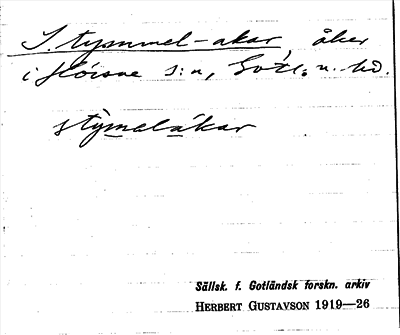 S. tysmmel-akar, åker
i Hörsne s:n, Gotl. n. hd.
stỳmalákar
Sällsk. f. Gotländsk forskn. arkiv
HERBERT GUSTAVSON 1919—26